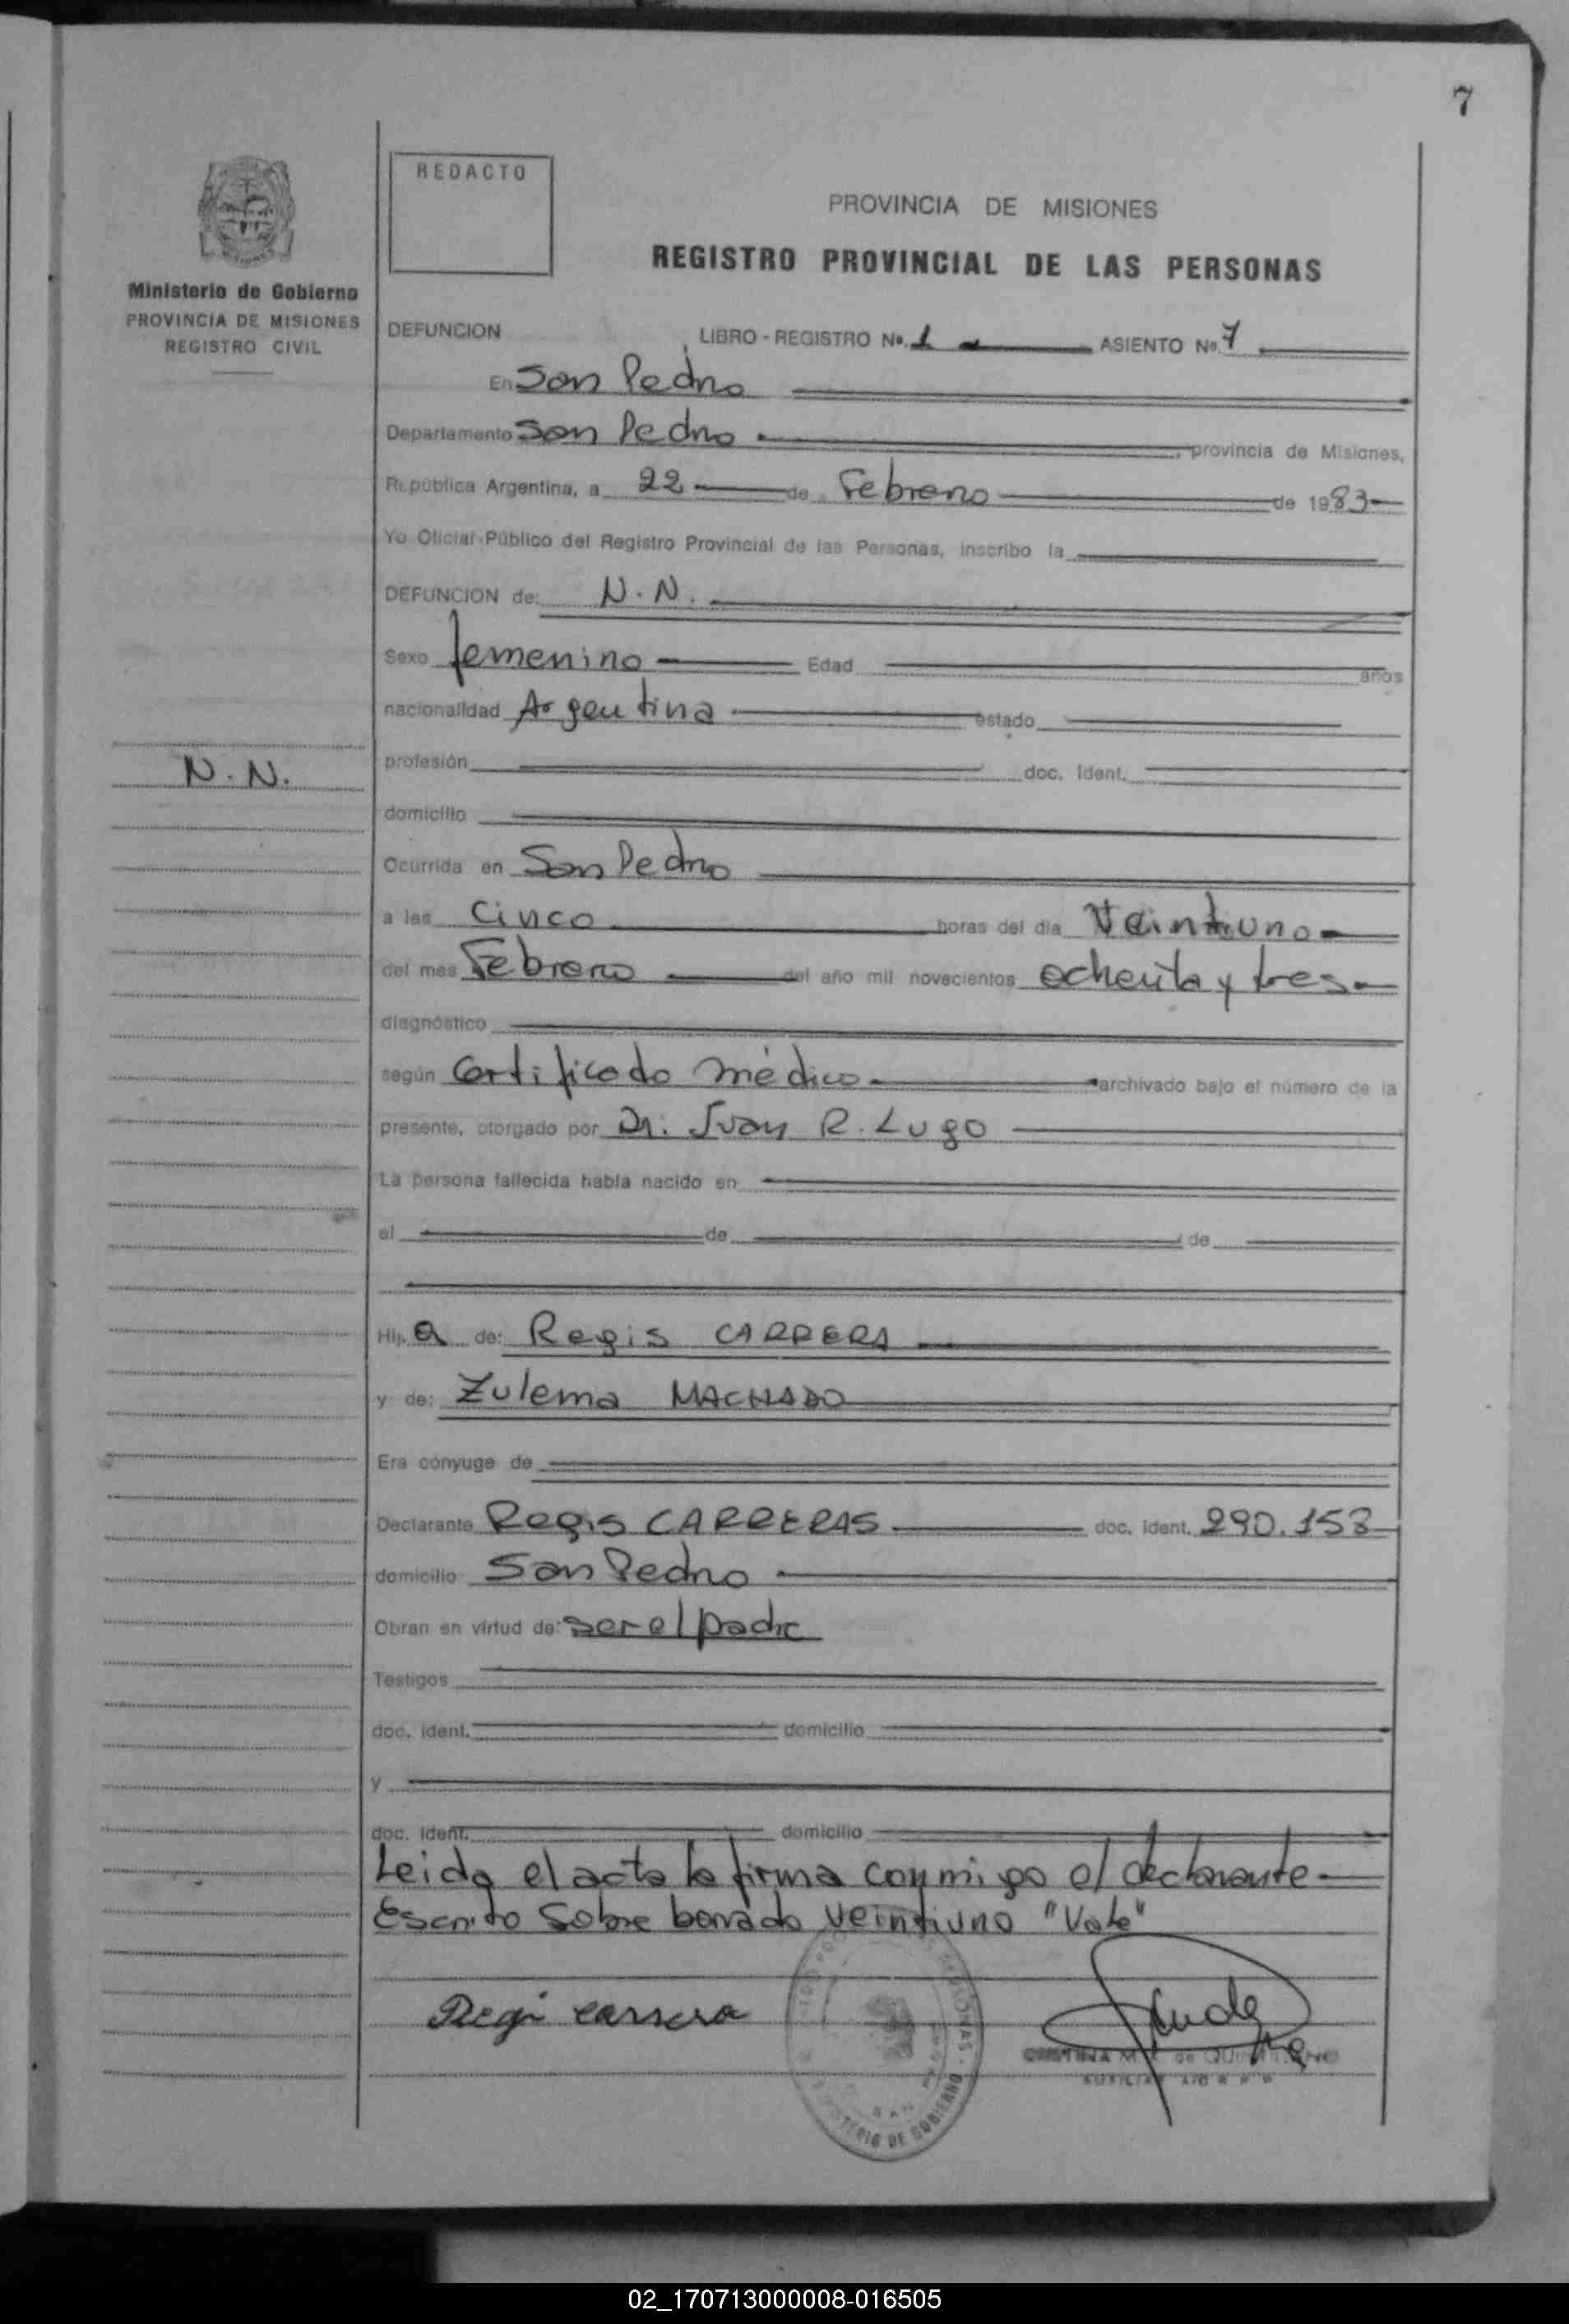 7
REDACTO
PROVINCIA DE MISIONES
REGISTRO PROVINCIAL DE LAS PERSONAS
Ministerio de Gobierno
PROVINCIA DE MISIONES
REGISTRO CIVIL
DEFUNCION LIBRO - REGISTRO No. 1 ASIENTO No. 7
En San Pedro
Departamento San Pedro , provincia de Misiones,
República Argentina, a 22 de Febrero de 1983
Yo Oficial Público del Registro Provincial de las Personas, inscribo la
DEFUNCION de: N. N.
Sexo femenino Edad años
nacionalidad Argentina estado
N. N.
profesión doc. ident.
domicilio
Ocurrida en San Pedro
a las Cinco horas del día Veintiuno
del mes Febrero del año mil novecientos ochenta y tres
diagnóstico
según Certificado médico archivado bajo el número de la
presente, otorgado por Dr. Juan R. Lugo
La persona fallecida había nacido en
el de de
Hij a de: Regis CARRERA
y de: Zulema MACHADO
Era cónyuge de
Declarante Regis CARRERAS doc. ident. 290.153
domicilio San Pedro
Obran en virtud de: ser el padre
Testigos
doc. ident. domicilio
y
doc. ident. domicilio
Leida el acta la firma conmigo el declarante
Escrito sobre borrado veintiuno "Vale"
Regi carrera
CRISTINA M. de
AUXILIAR
MINISTERIO DE GOBIERNO
02_170713000008-016505